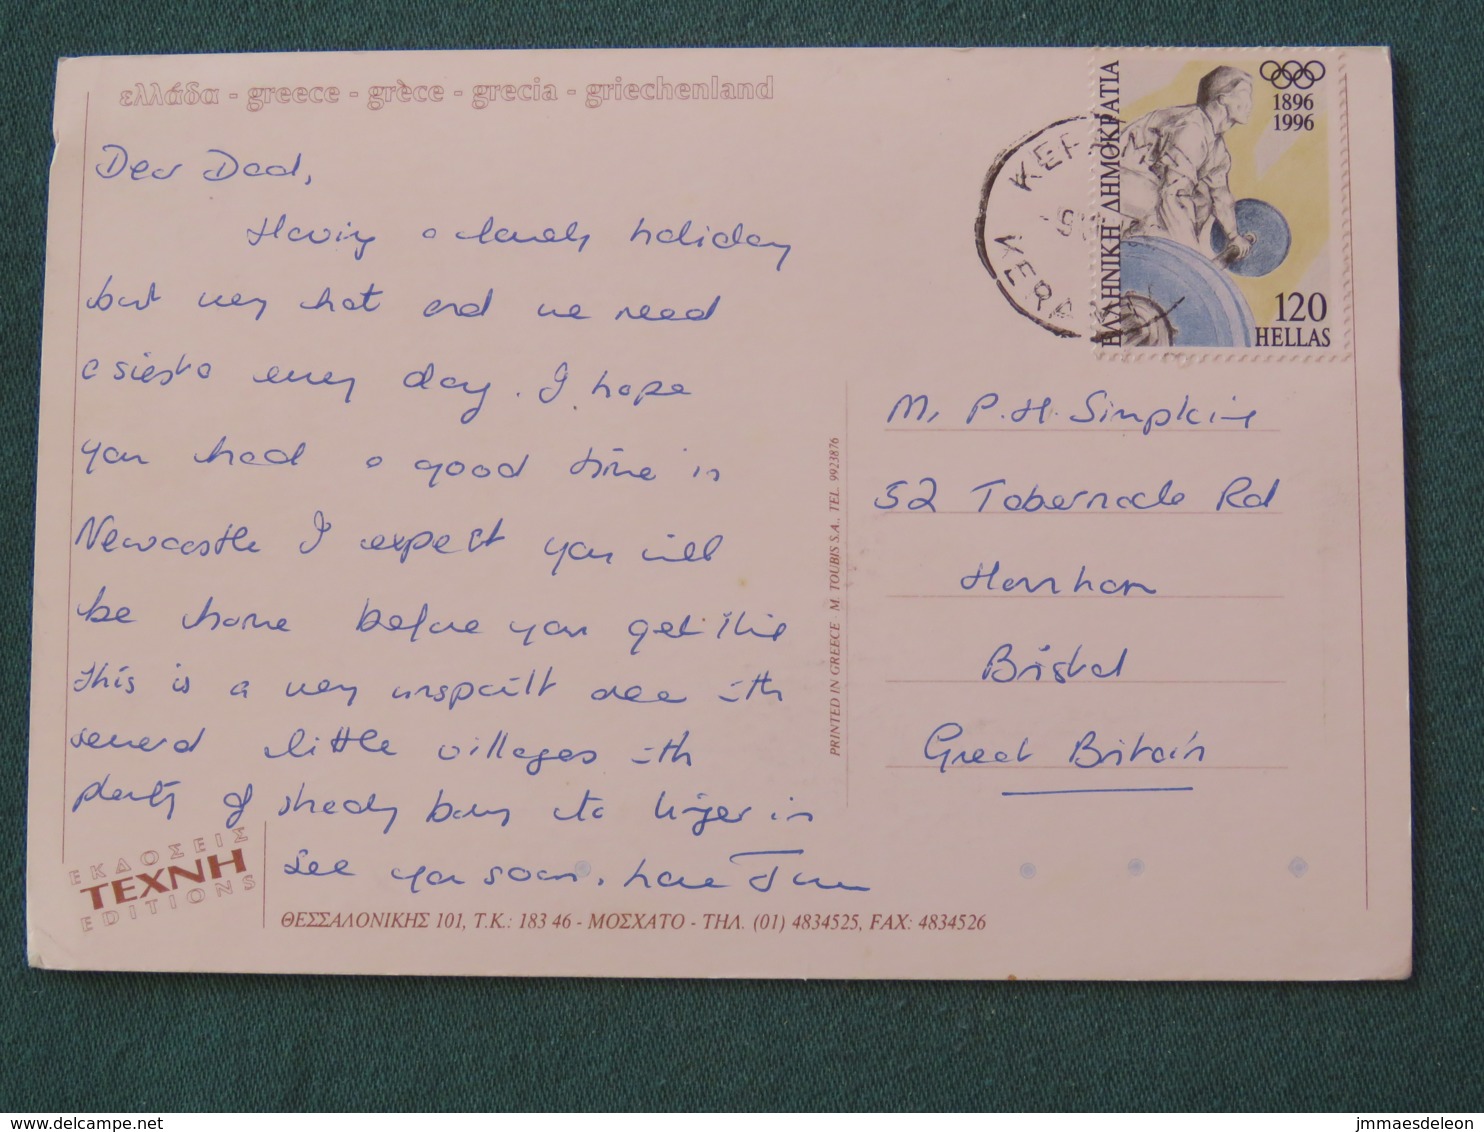 ελλάδα - greece - grèce - grecia - griechenland
Dear Dad,
Having a lovely holiday
but very hot and we need
a siesta every day. I hope
you had a good time in
Newcastle I expect you will
be home before you get this
This is a very unspoilt area with
several little villages with
plenty of shady bars to linger in
See you soon. love
ΕΚΔΟΣΕΙΣ
ΤΕΧΝΗ
EDITIONS
ΘΕΣΣΑΛΟΝΙΚΗΣ 101, Τ.Κ.: 183 46 - ΜΟΣΧΑΤΟ - ΤΗΛ. (01) 4834525, FAX: 4834526
PRINTED IN GREECE M. TOUBIS S.A., TEL. 9923876
ΕΛΛΗΝΙΚΗ ΔΗΜΟΚΡΑΤΙΑ
1896
1996
120
HELLAS
Mr P.H. Simpkins
52 Tabernacle Rd
Hanham
Bristol
Great Britain
delcampe.net
jmmaesdeleon